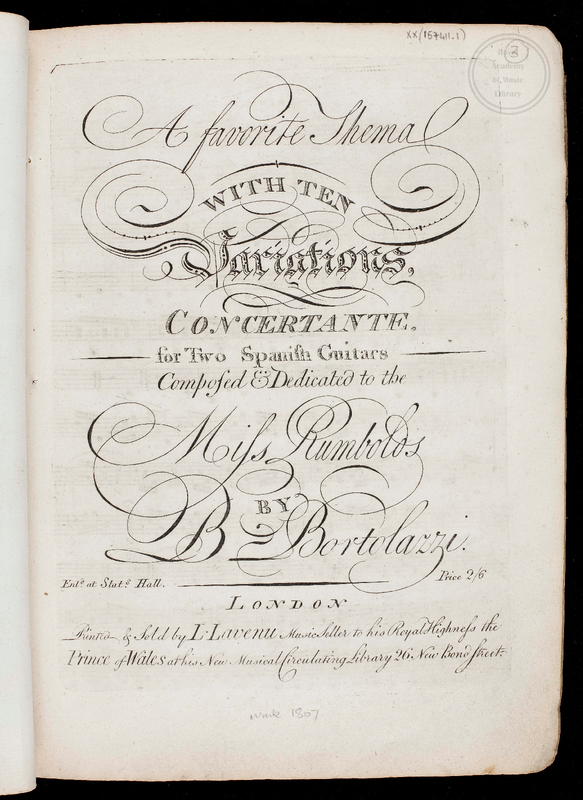 XX(157411.1)
2
Royal
Academy
of Music
Library
A favorite Thema
WITH TEN
Variations,
CONCERTANTE.
for Two Spaniſh Guitars
Compoſed & Dedicated to the
Miſs Rumbolds
BY
B= Bortolazzi.
Ent.d at Stat.s Hall. Price 2/6
LONDON
Printed & Sold by L. Lavenu Music Seller to his Royal Highneſs the
Prince of Wales at his New Musical Circulating Library 26 New Bond Street.
1807